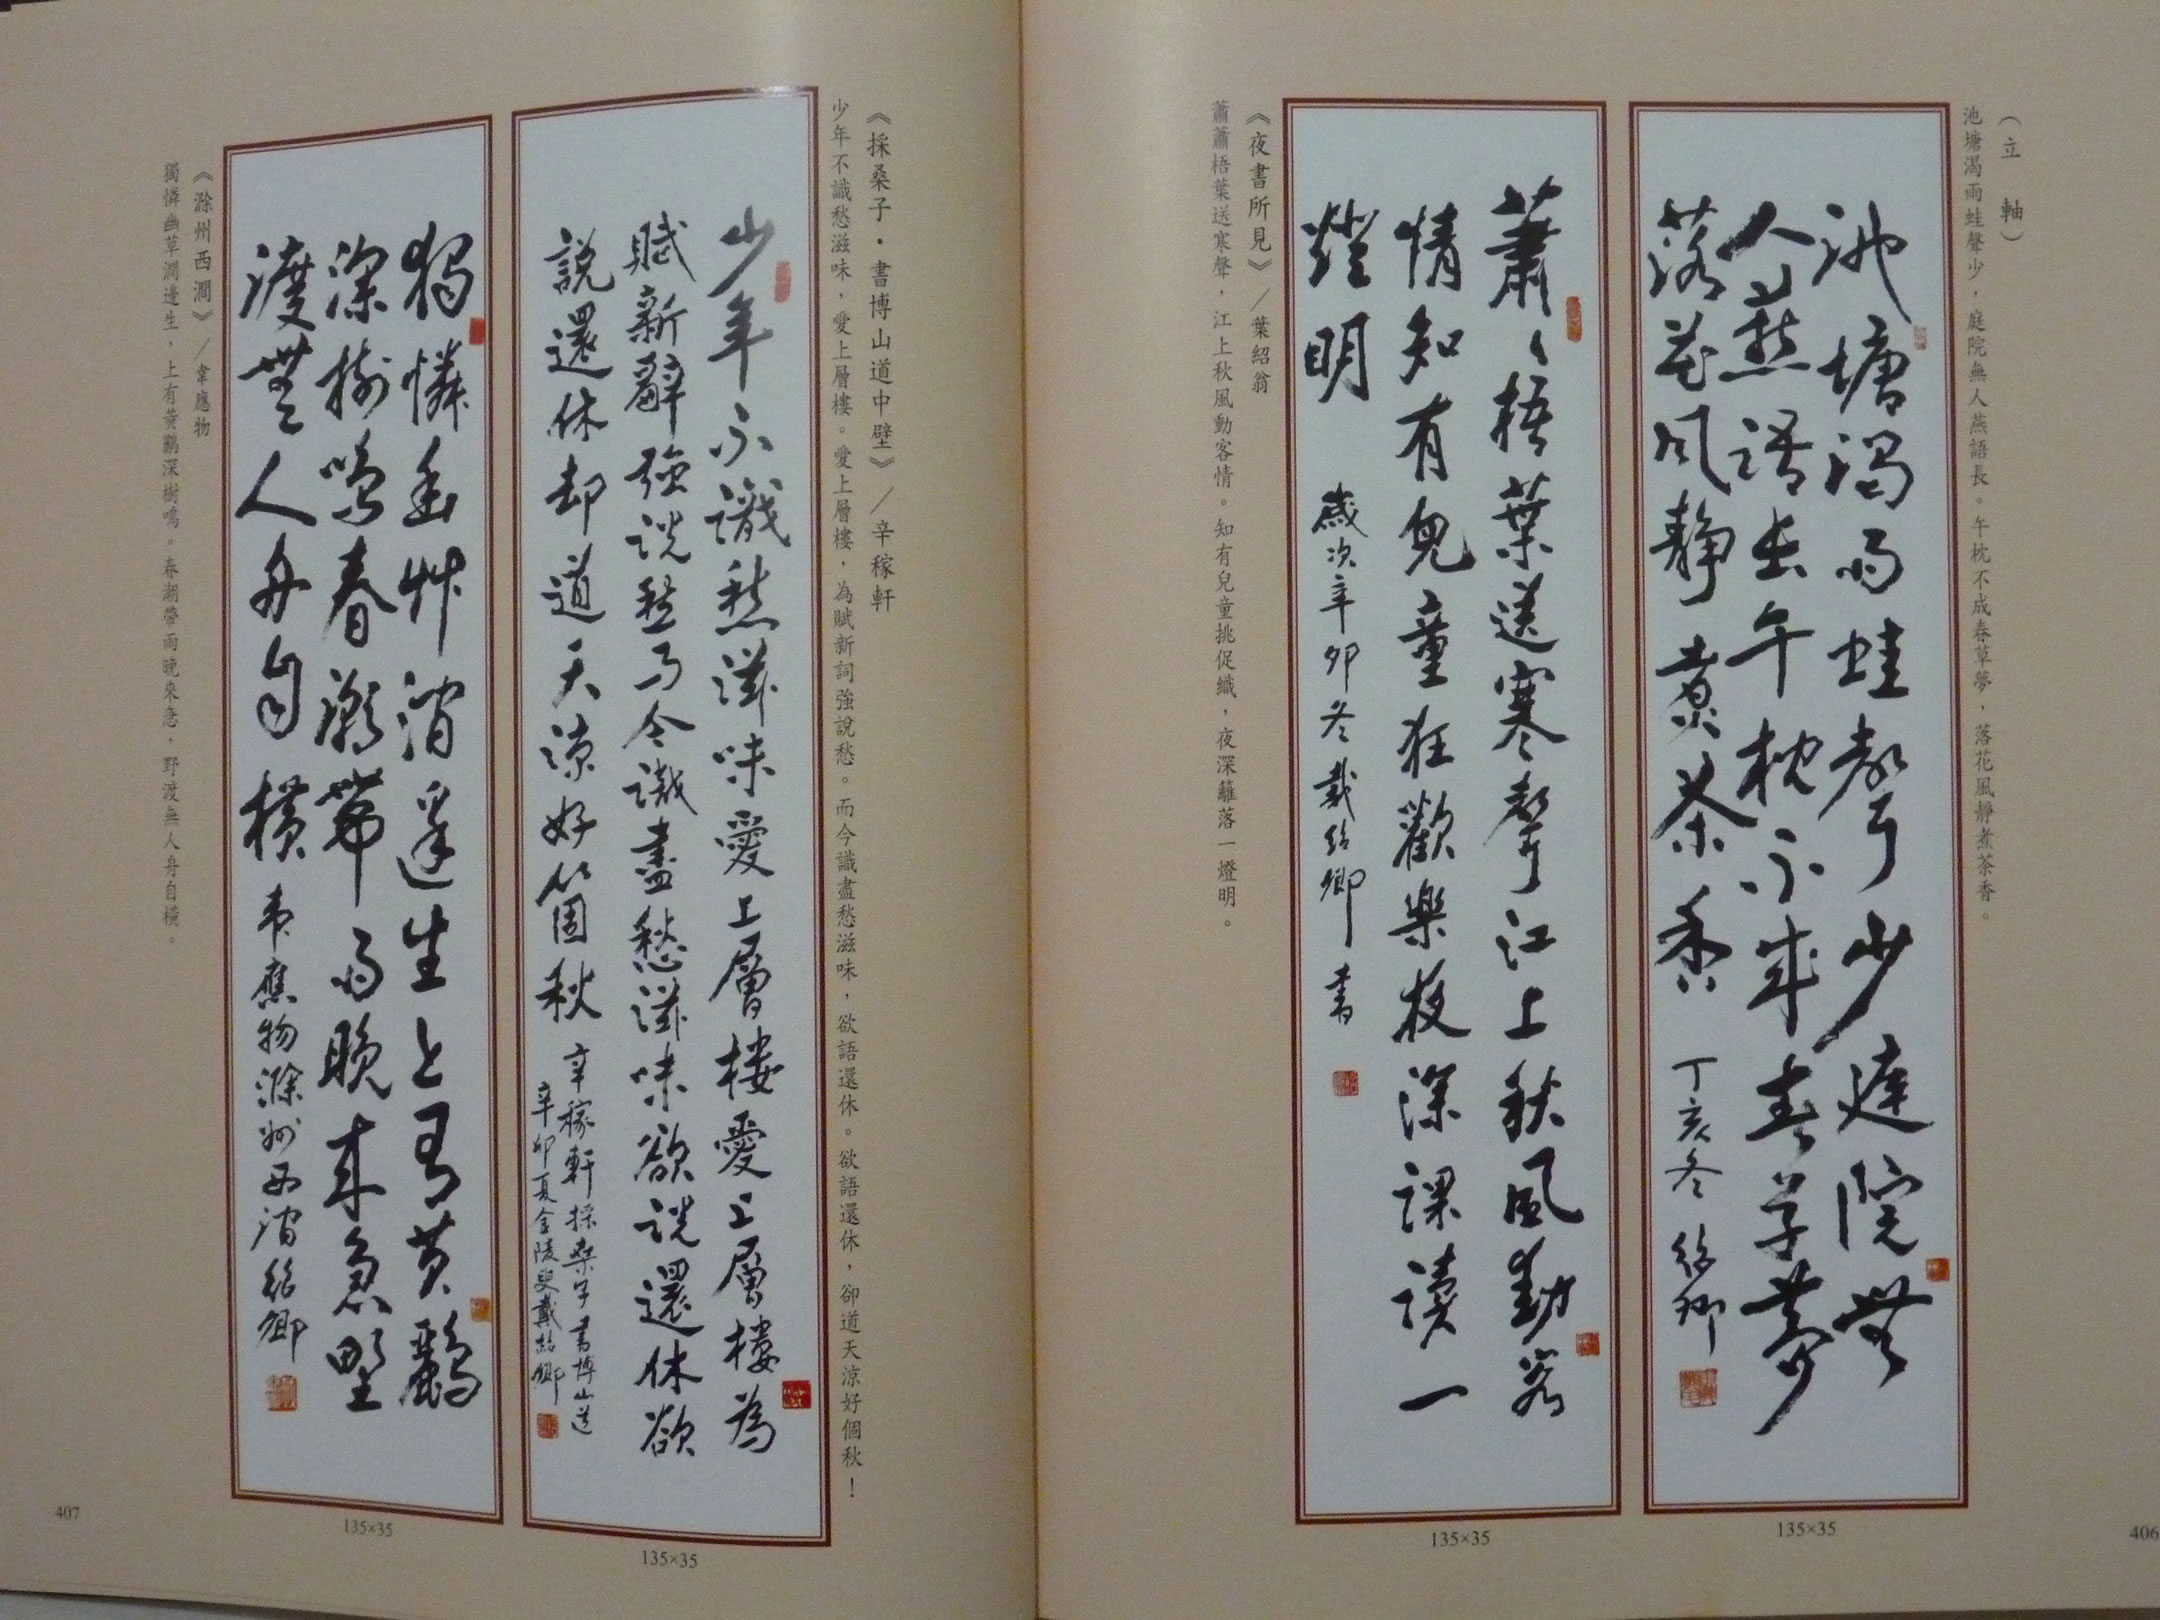 （立 軸）
池塘渴雨蛙聲少，庭院無人燕語長。午枕不成春草夢，落花風靜煮茶香。
池塘渴雨蛙聲少庭院無
人燕語長午枕不成春草夢
落花風靜煮茶香 丁亥冬 紹卿
135×35
《夜書所見》／葉紹翁
蕭蕭梧葉送寒聲，江上秋風動客情。知有兒童挑促織，夜深籬落一燈明。
蕭〻梧葉送寒聲江上秋風動客
情知有兒童狂歡樂夜深課讀一
燈明 歲次辛卯冬戴紹卿書
135×35
406
《採桑子・書博山道中壁》／辛稼軒
少年不識愁滋味，愛上層樓。愛上層樓，為賦新詞強說愁。而今識盡愁滋味，欲語還休。欲語還休，卻道天涼好個秋！
少年不識愁滋味愛上層樓愛上層樓為
賦新辭強說愁而今識盡愁滋味欲說還休欲
說還休却道天涼好箇秋 辛稼軒採桑子書博山道
辛卯夏金陵叟戴紹卿
135×35
《滁州西澗》／韋應物
獨憐幽草澗邊生，上有黃鸝深樹鳴。春潮帶雨晚來急，野渡無人舟自橫。
獨憐幽艸澗邊生上有黃鸝
深樹鳴春潮帶雨晚來急野
渡無人舟自橫 韋應物滁州西澗紹卿
135×35
407